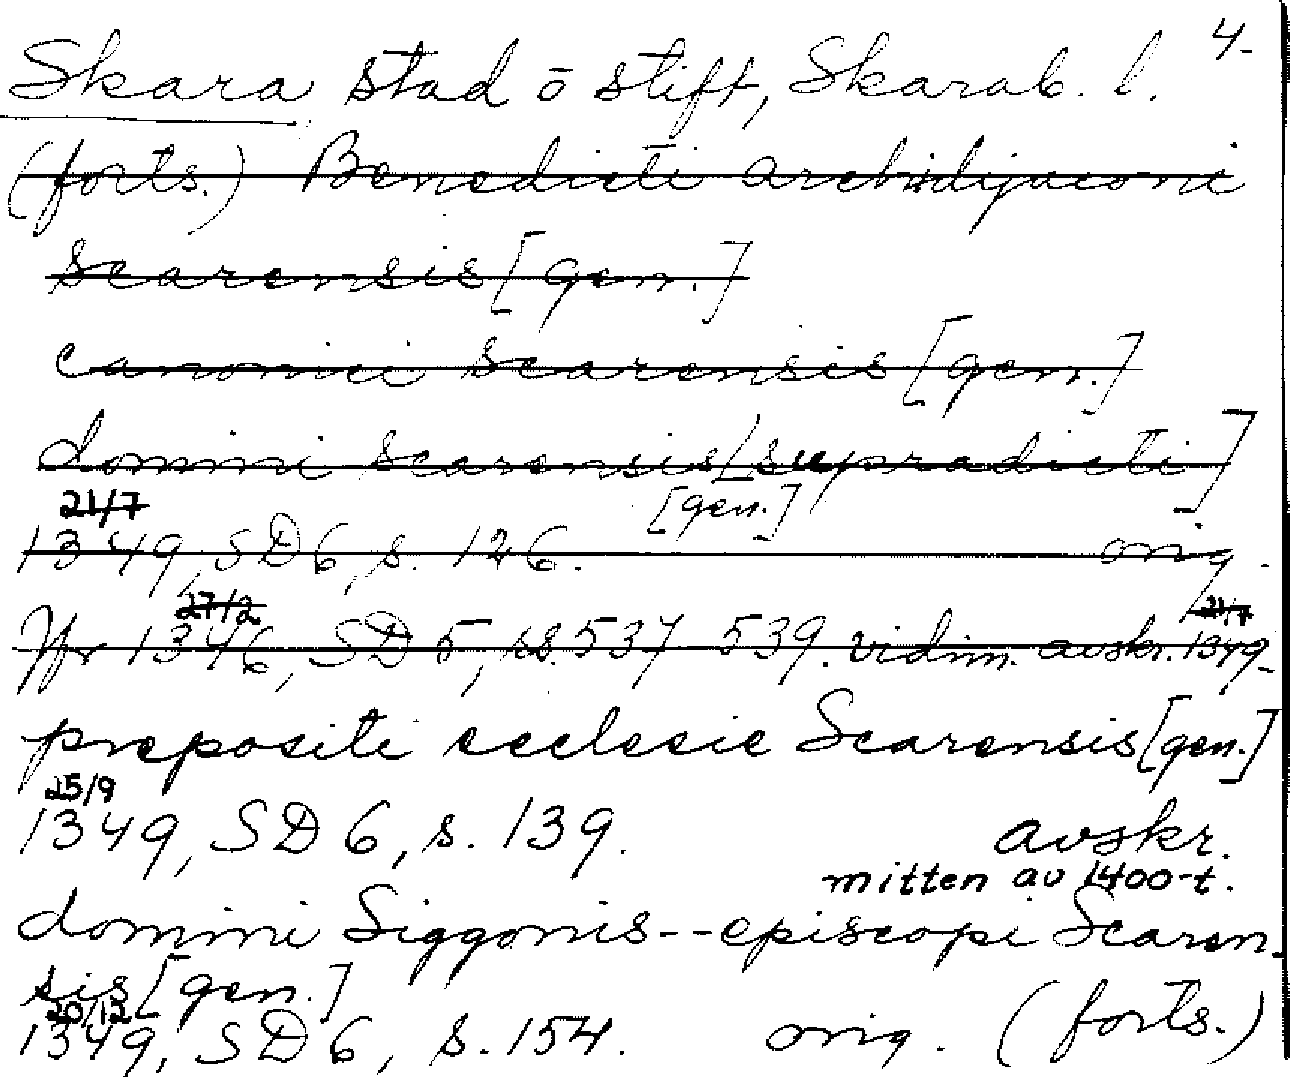 4.
Skara stad o stift, Skarab. l.
(forts.) Benedicti archidyaconi
Scarensis [gen.]
canonici Scarensis [gen.]
domini Scarensis [supradicti]
21/7 [gen.]
1349, SD 6, s. 126. orig.
27/2 21/7
Jfr 1346, SD 5, ss. 537 539. vidim. avskr. 1349.
prepositi ecclesie Scarensis [gen.]
25/9
1349, SD 6, s. 139. avskr.
mitten av 1400-t.
domini Siggonis--episcopi Scaren-
sis [gen.]
20/12
1349, SD 6, s. 154. orig. (forts.)